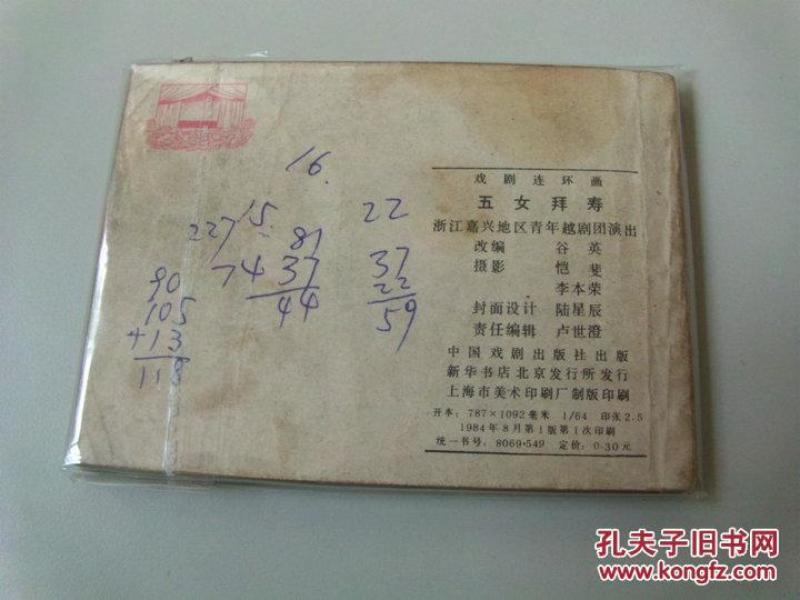 16.
227 15.
81
22
74 37
44
37
22
59
90
105
+13
118
戏剧连环画
五女拜寿
浙江嘉兴地区青年越剧团演出
改编 谷英
摄影 恺斐
李本荣
封面设计 陆星辰
责任编辑 卢世澄
中国戏剧出版社出版
新华书店北京发行所发行
上海市美术印刷厂制版印刷
开本：787×1092毫米 1/64 印张2.5
1984年8月第1版第1次印刷
统一书号：8069·549 定价：0.30元
孔夫子旧书网
www.kongfz.com